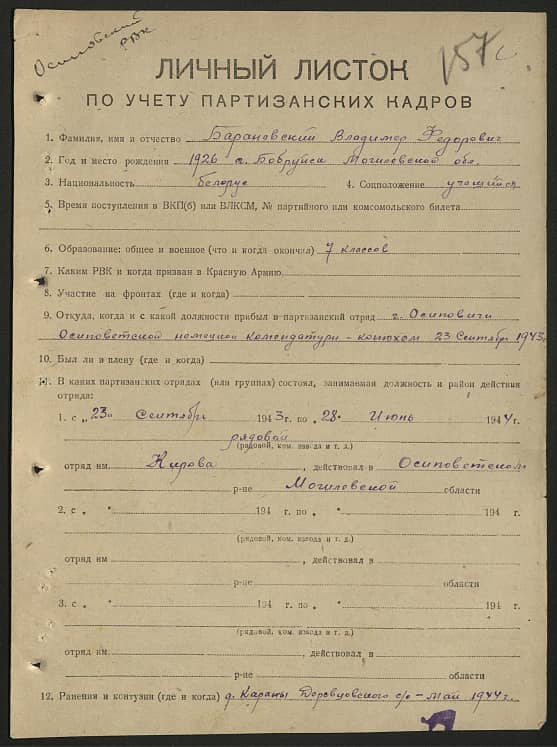 Осиповский
РВК
157
ЛИЧНЫЙ ЛИСТОК
ПО УЧЕТУ ПАРТИЗАНСКИХ КАДРОВ
1. Фамилия, имя и отчество Барановский Владимир Федорович
2. Год и место рождения 1926 г. Бобруйск Могилевской обл.
3. Национальность белорус 4. Соцположение учащийся
5. Время поступления в ВКП(б) или ВЛКСМ, № партийного или комсомольского билета
6. Образование: общее и военное (что и когда окончил) 7 классов
7. Каким РВК и когда призван в Красную Армию
8. Участие на фронтах (где и когда)
9. Откуда, когда и с какой должности прибыл в партизанский отряд г. Осиповичи
Осиповетской немецкой комендатури - конюхом 23 Сентябр 1943г
10. Был ли в плену (где и когда)
11. В каких партизанских отрядах (или группах) состоял, занимаемая должность и район действия
отряда:
1. с „23" Сентябрь 1943г. по „28" Июнь 1944г.
рядовой
(рядовой, ком. взвода и т. д.)
отряд им. Кирова, действовал в Осиповетском
р-не Могилевской области
2. с „ " 194 г. по „ " 194 г.
(рядовой, ком. взвода и т. д.)
отряд им. , действовал в
р-не области
3. с „ " 194 г. по „ " 194 г.
(рядовой, ком. взвода и т. д.)
отряд им. , действовал в
р-не области
12. Ранения и контузии (где и когда) д. Караны Доревцовского с/с - Май 1944 г.